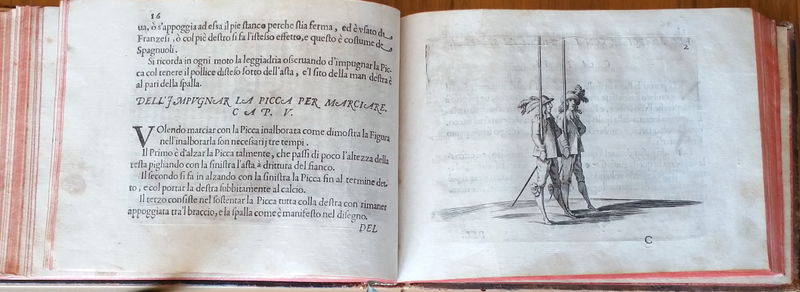 16
ua, ò s'appoggia ad essa il pie stanco perche stia ferma, ed è vsato da
Franzesi, ò col piè destro si fa l'istesso effetto, e questo è costume de
Spagnuoli.
Si ricorda in ogni moto la leggiadria osseruando d'impugnar la Pic-
ca col tenere il pollice disteso sotto dell'asta, e'l sito della man destra è
al pari della spalla.
DELL'IMPVGNAR LA PICCA PER MARCIARE.
CAP. V.
VOlendo marciar con la Picca inalborata come dimostra la Figura
nell'inalborarla son necesarij tre tempi.
Il Primo è d'alzar la Picca talmente, che passi di poco l'altezza della
testa pigliando con la sinistra l'asta à drittura del fianco.
Il secondo si fa in alzando con la sinistra la Picca fin al termine det-
to, e col portar la destra subbitamente al calcio.
Il terzo consiste nel sostentar la Picca tutta colla destra con rimaner
appoggiata tra'l braccio, e la spalla come è manifesto nel disegno.
DEL
2
C